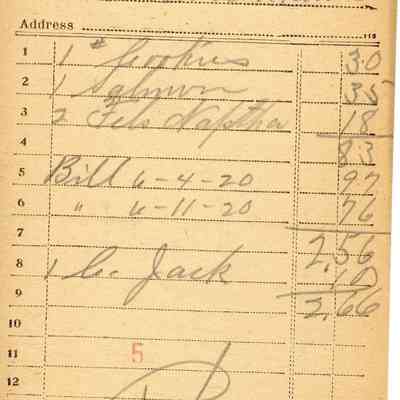 Address
1 1 # Cookies 30
2 1 Salmon 35
3 2 Fels Naptha 18
4 83
5 Bill 6-4-20 97
6 " 6-11-20 76
7 2.56
8 1 Jack 10
9 2.66
10
11 5
12